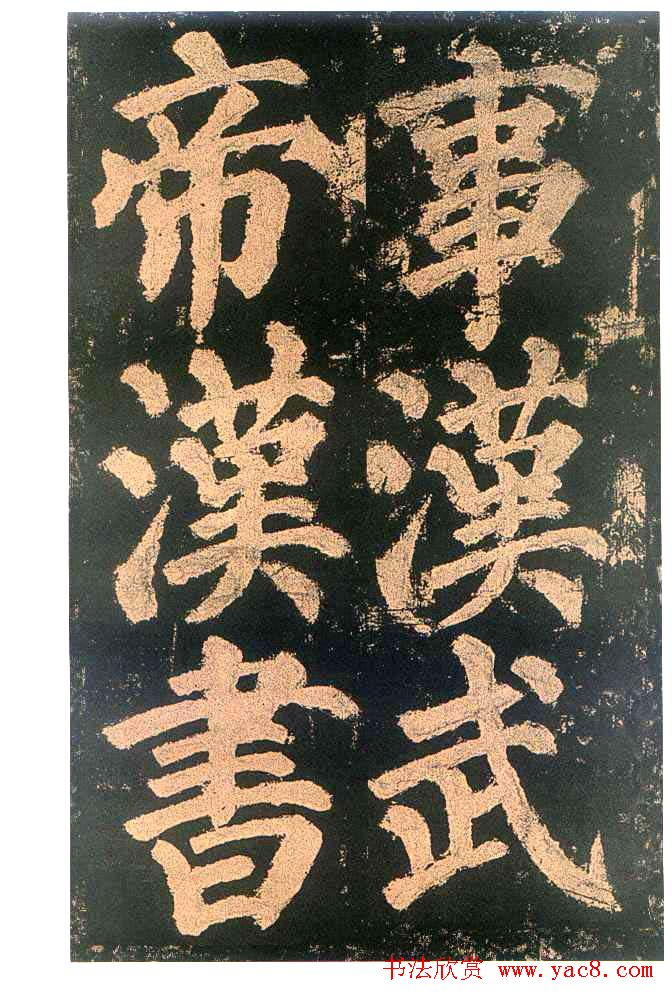 事漢武
帝漢書
书法欣赏 www.yac8.com